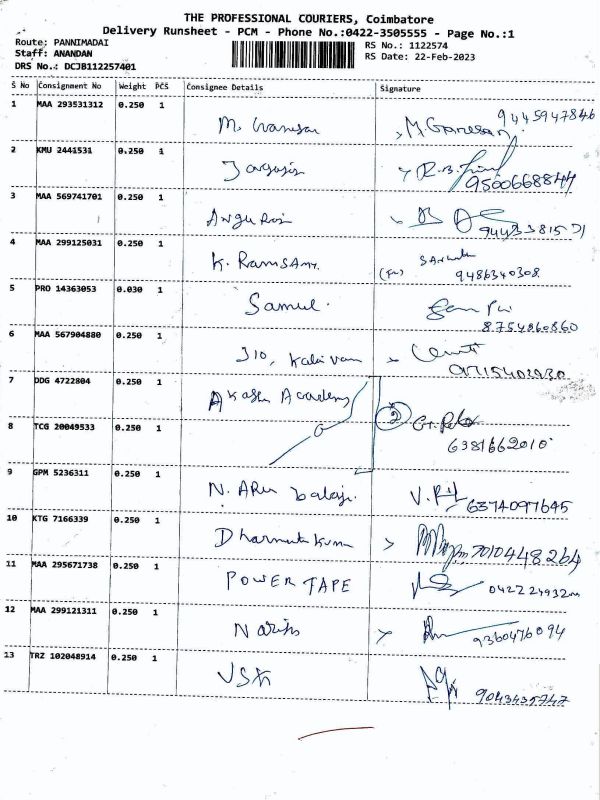 THE PROFESSIONAL COURIERS, Coimbatore
Delivery Runsheet - PCM - Phone No.:0422-3505555 - Page No.:1
Route: PANNIMADAI
RS No.: 1122574
Staff: ANANDAN
RS Date: 22-Feb-2023
DRS No.: DCJB112257401
S No Consignment No Weight PCS Consignee Details Signature
1 MAA 293531312 0.250 1 M. Ganesan 9445947846
2 KMU 2441531 0.250 1 9500668844
3 MAA 569741701 0.250 1
4 MAA 299125031 0.250 1 K. RAmSAmy. 9486340308
5 PRO 14363053 0.030 1 Samul.
8754860860
6 MAA 567904880 0.250 1 JIO, Kalaivani
7 DDG 4722804 0.250 1 Akash Academy
8 TCG 20049533 0.250 1 2
6381662010
9 GPM 5236311 0.250 1 N. ARun balaji. 6374097645
10 KTG 7166339 0.250 1 7010448264
11 MAA 295671738 0.250 1 POWER TAPE
12 MAA 299121311 0.250 1 9360476094
13 TRZ 102048914 0.250 1 9043435747